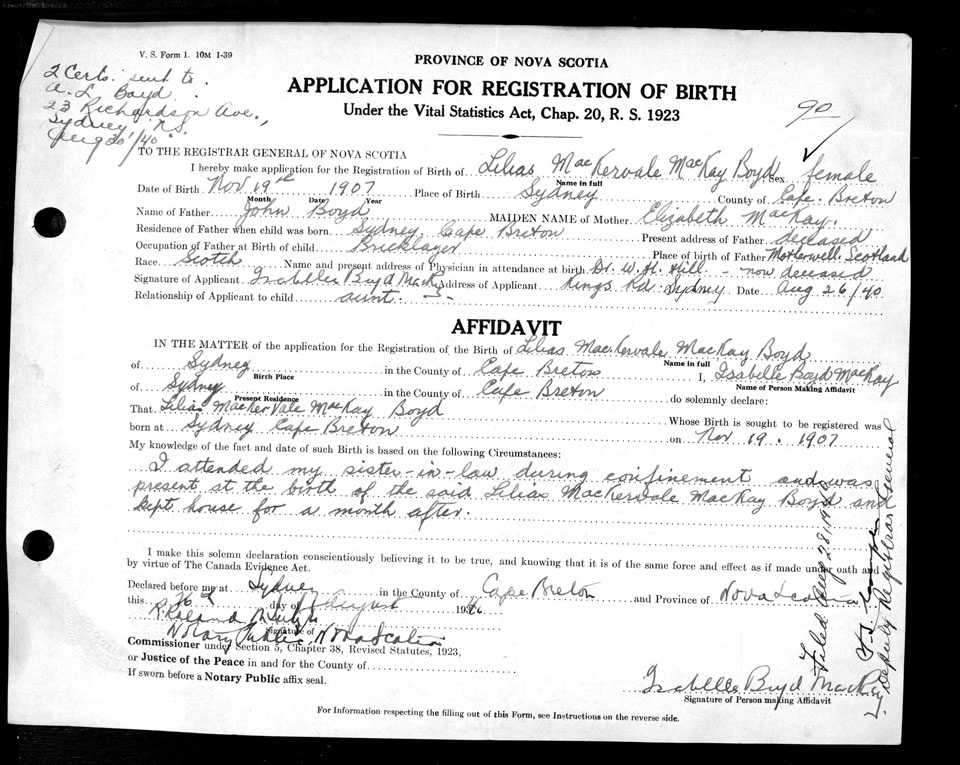 V. S. Form 1. 10M 1-39
2 Certs. sent to
A. L. Boyd
23 Richardson Ave.,
Sydney, N.S.
Aug 30/40
PROVINCE OF NOVA SCOTIA
APPLICATION FOR REGISTRATION OF BIRTH
Under the Vital Statistics Act, Chap. 20, R. S. 1923
90
TO THE REGISTRAR GENERAL OF NOVA SCOTIA
I hereby make application for the Registration of Birth of Lilias MacKervale MacKay Boyd Sex female
Name in full
Date of Birth Nov 19th 1907 Place of Birth Sydney County of Cape Breton
Month Date Year
Name of Father John Boyd MAIDEN NAME of Mother Elizabeth MacKay.
Residence of Father when child was born Sydney, Cape Breton Present address of Father deceased
Occupation of Father at Birth of child Bricklayer Place of birth of Father Motherwell, Scotland
Race Scotch Name and present address of Physician in attendance at birth Dr. W. H. Hill - now deceased
Signature of Applicant Isabelle Boyd MacKay Address of Applicant Kings Rd. Sydney Date Aug 26/40
Relationship of Applicant to child aunt
AFFIDAVIT
IN THE MATTER of the application for the Registration of the Birth of Lilias MacKervale MacKay Boyd
Name in full
of Sydney in the County of Cape Breton I, Isabelle Boyd MacKay
Birth Place Name of Person Making Affidavit
of Sydney in the County of Cape Breton do solemnly declare:
Present Residence
That Lilias MacKerVale MacKay Boyd Whose Birth is sought to be registered was
born at Sydney Cape Breton on Nov 19. 1907
My knowledge of the fact and date of such Birth is based on the following Circumstances:
I attended my sister-in-law during confinement and was
present at the birth of the said Lilias MacKervale MacKay Boyd and
kept house for a month after.
I make this solemn declaration conscientiously believing it to be true, and knowing that it is of the same force and effect as if made under oath and
by virtue of The Canada Evidence Act.
Declared before me at Sydney in the County of Cape Breton and Province of Nova Scotia
this 26 day of August 1940
R. Roland
Signature of
Notary Public, Nova Scotia
Commissioner under Section 5, Chapter 38, Revised Statutes, 1923,
or Justice of the Peace in and for the County of
If sworn before a Notary Public affix seal.
Isabelle Boyd MacKay
Signature of Person making Affidavit
For Information respecting the filling out of this Form, see Instructions on the reverse side.
Filed Aug 28
Deputy Registrar General